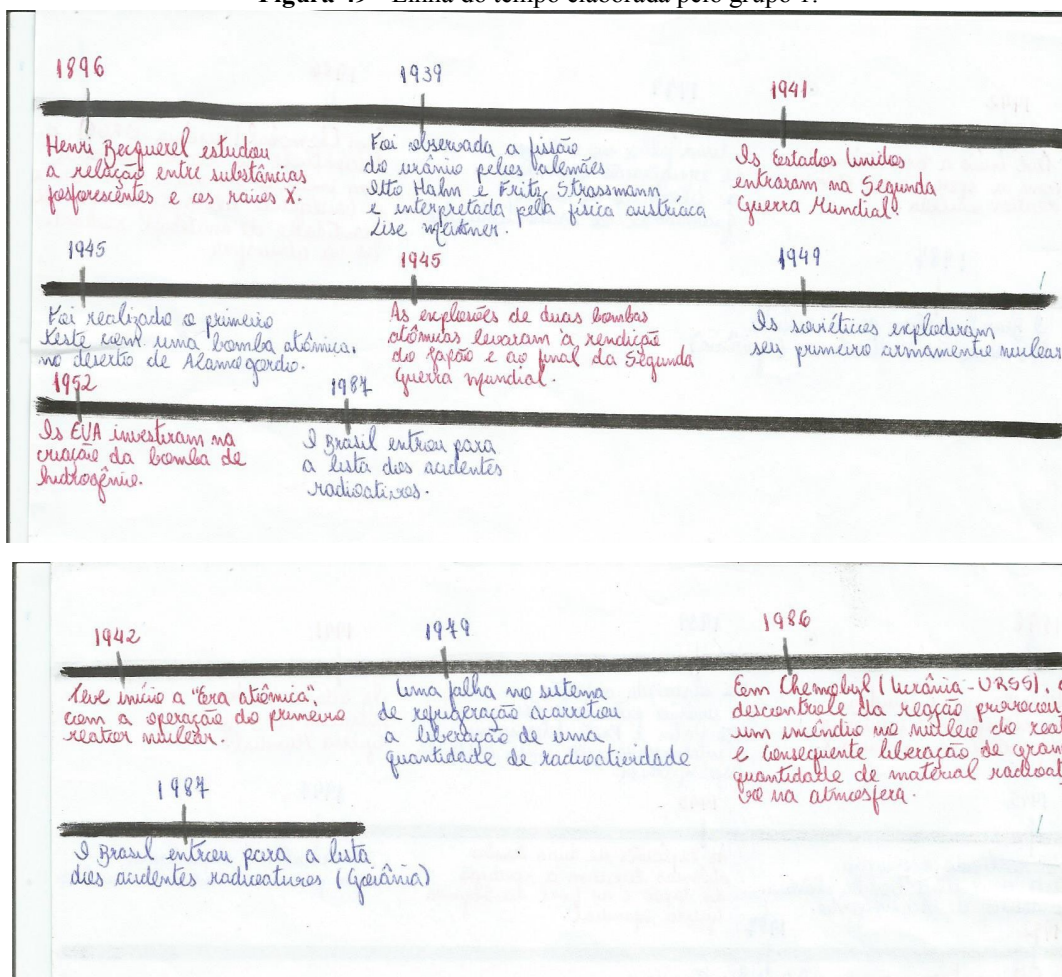 Figura 49 - Linha do tempo elaborada pelo grupo 1.
1896 1939 1941
Henri Becquerel estudou
a relação entre substâncias
fosforescentes e os raios X.
Foi observada a fissão
do urânio pelos alemães
Otto Hahn e Fritz Strassmann
e interpretada pela física austríaca
Lise Meitner.
Os Estados Unidos
entraram na Segunda
Guerra Mundial.
1945 1945 1949
Foi realizado o primeiro
teste com uma bomba atômica,
no deserto de Alamogordo.
As explosões de duas bombas
atômicas levaram à rendição
do Japão e ao final da Segunda
Guerra Mundial.
Os soviéticos explodiram
seu primeiro armamento nuclear
1952 1987
Os EUA investiram na
criação da bomba de
hidrogênio.
O Brasil entrou para
a lista dos acidentes
radioativos.
1942 1979 1986
Teve início a "Era atômica",
com a operação do primeiro
reator nuclear.
Uma falha no sistema
de refrigeração acarretou
a liberação de uma
quantidade de radioatividade
Em Chernobyl (Ucrânia - URSS), o
descontrole da reação provocou
um incêndio no núcleo do rea
e consequente liberação de gran
quantidade de material radioat
vo na atmosfera.
1987
O Brasil entrou para a lista
dos acidentes radioativos (Goiânia)